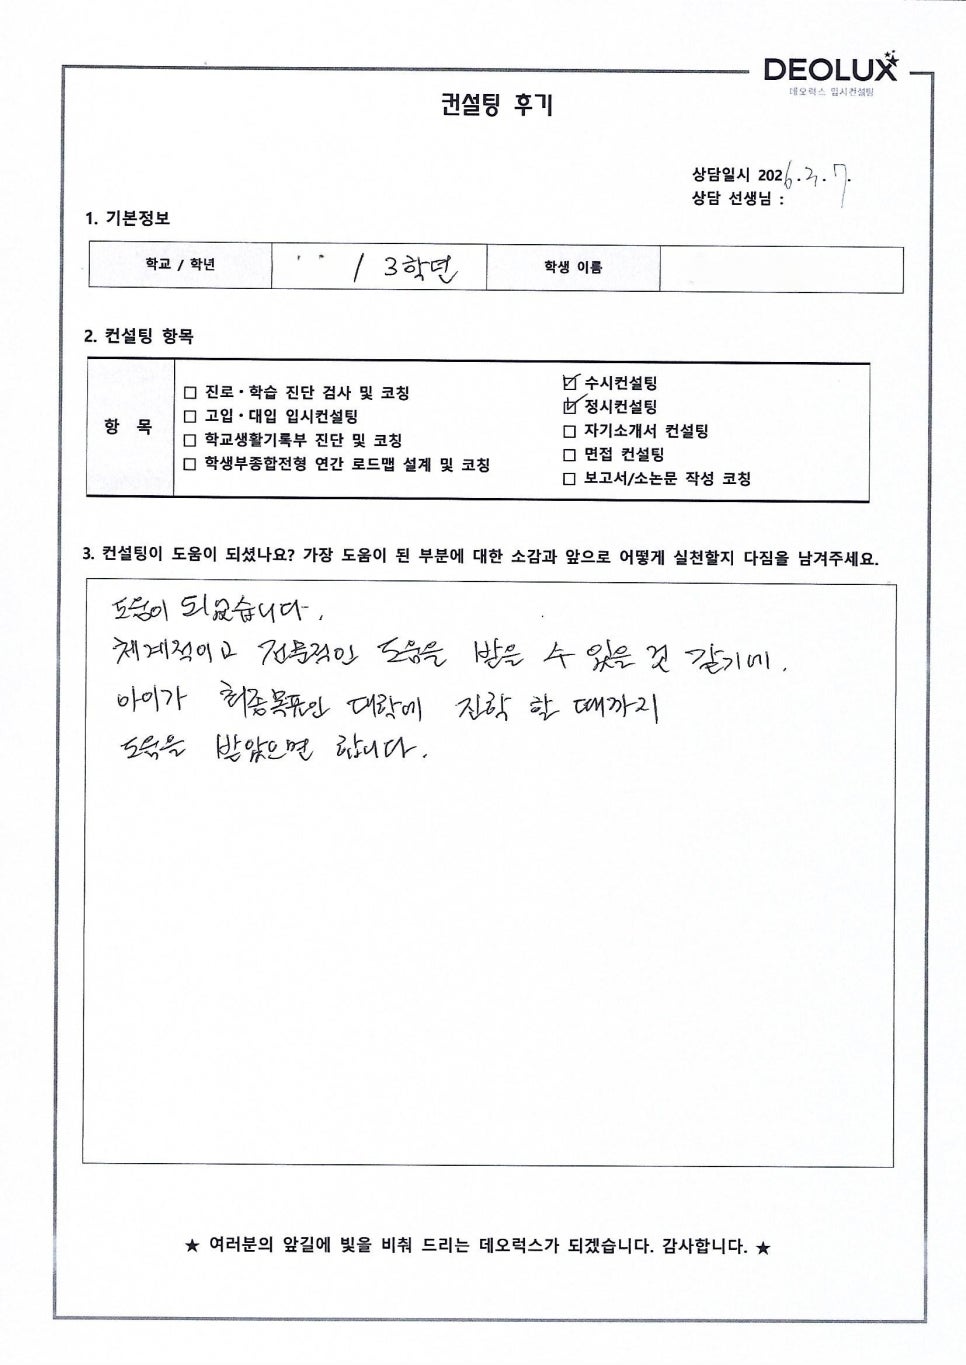 DEOLUX
데오럭스 입시컨설팅
컨설팅 후기
상담일시 2026. 2. 7.
상담 선생님 :
1. 기본정보
학교 / 학년 / 3학년 학생 이름
2. 컨설팅 항목
항 목
□ 진로·학습 진단 검사 및 코칭
□ 고입·대입 입시컨설팅
□ 학교생활기록부 진단 및 코칭
□ 학생부종합전형 연간 로드맵 설계 및 코칭
☑ 수시컨설팅
☑ 정시컨설팅
□ 자기소개서 컨설팅
□ 면접 컨설팅
□ 보고서/소논문 작성 코칭
3. 컨설팅이 도움이 되셨나요? 가장 도움이 된 부분에 대한 소감과 앞으로 어떻게 실천할지 다짐을 남겨주세요.
도움이 되었습니다.
체계적이고 전문적인 도움을 받을 수 있을 것 같기에.
아이가 최종목표인 대학에 진학 할 때까지
도움을 받았으면 합니다.
★ 여러분의 앞길에 빛을 비춰 드리는 데오럭스가 되겠습니다. 감사합니다. ★